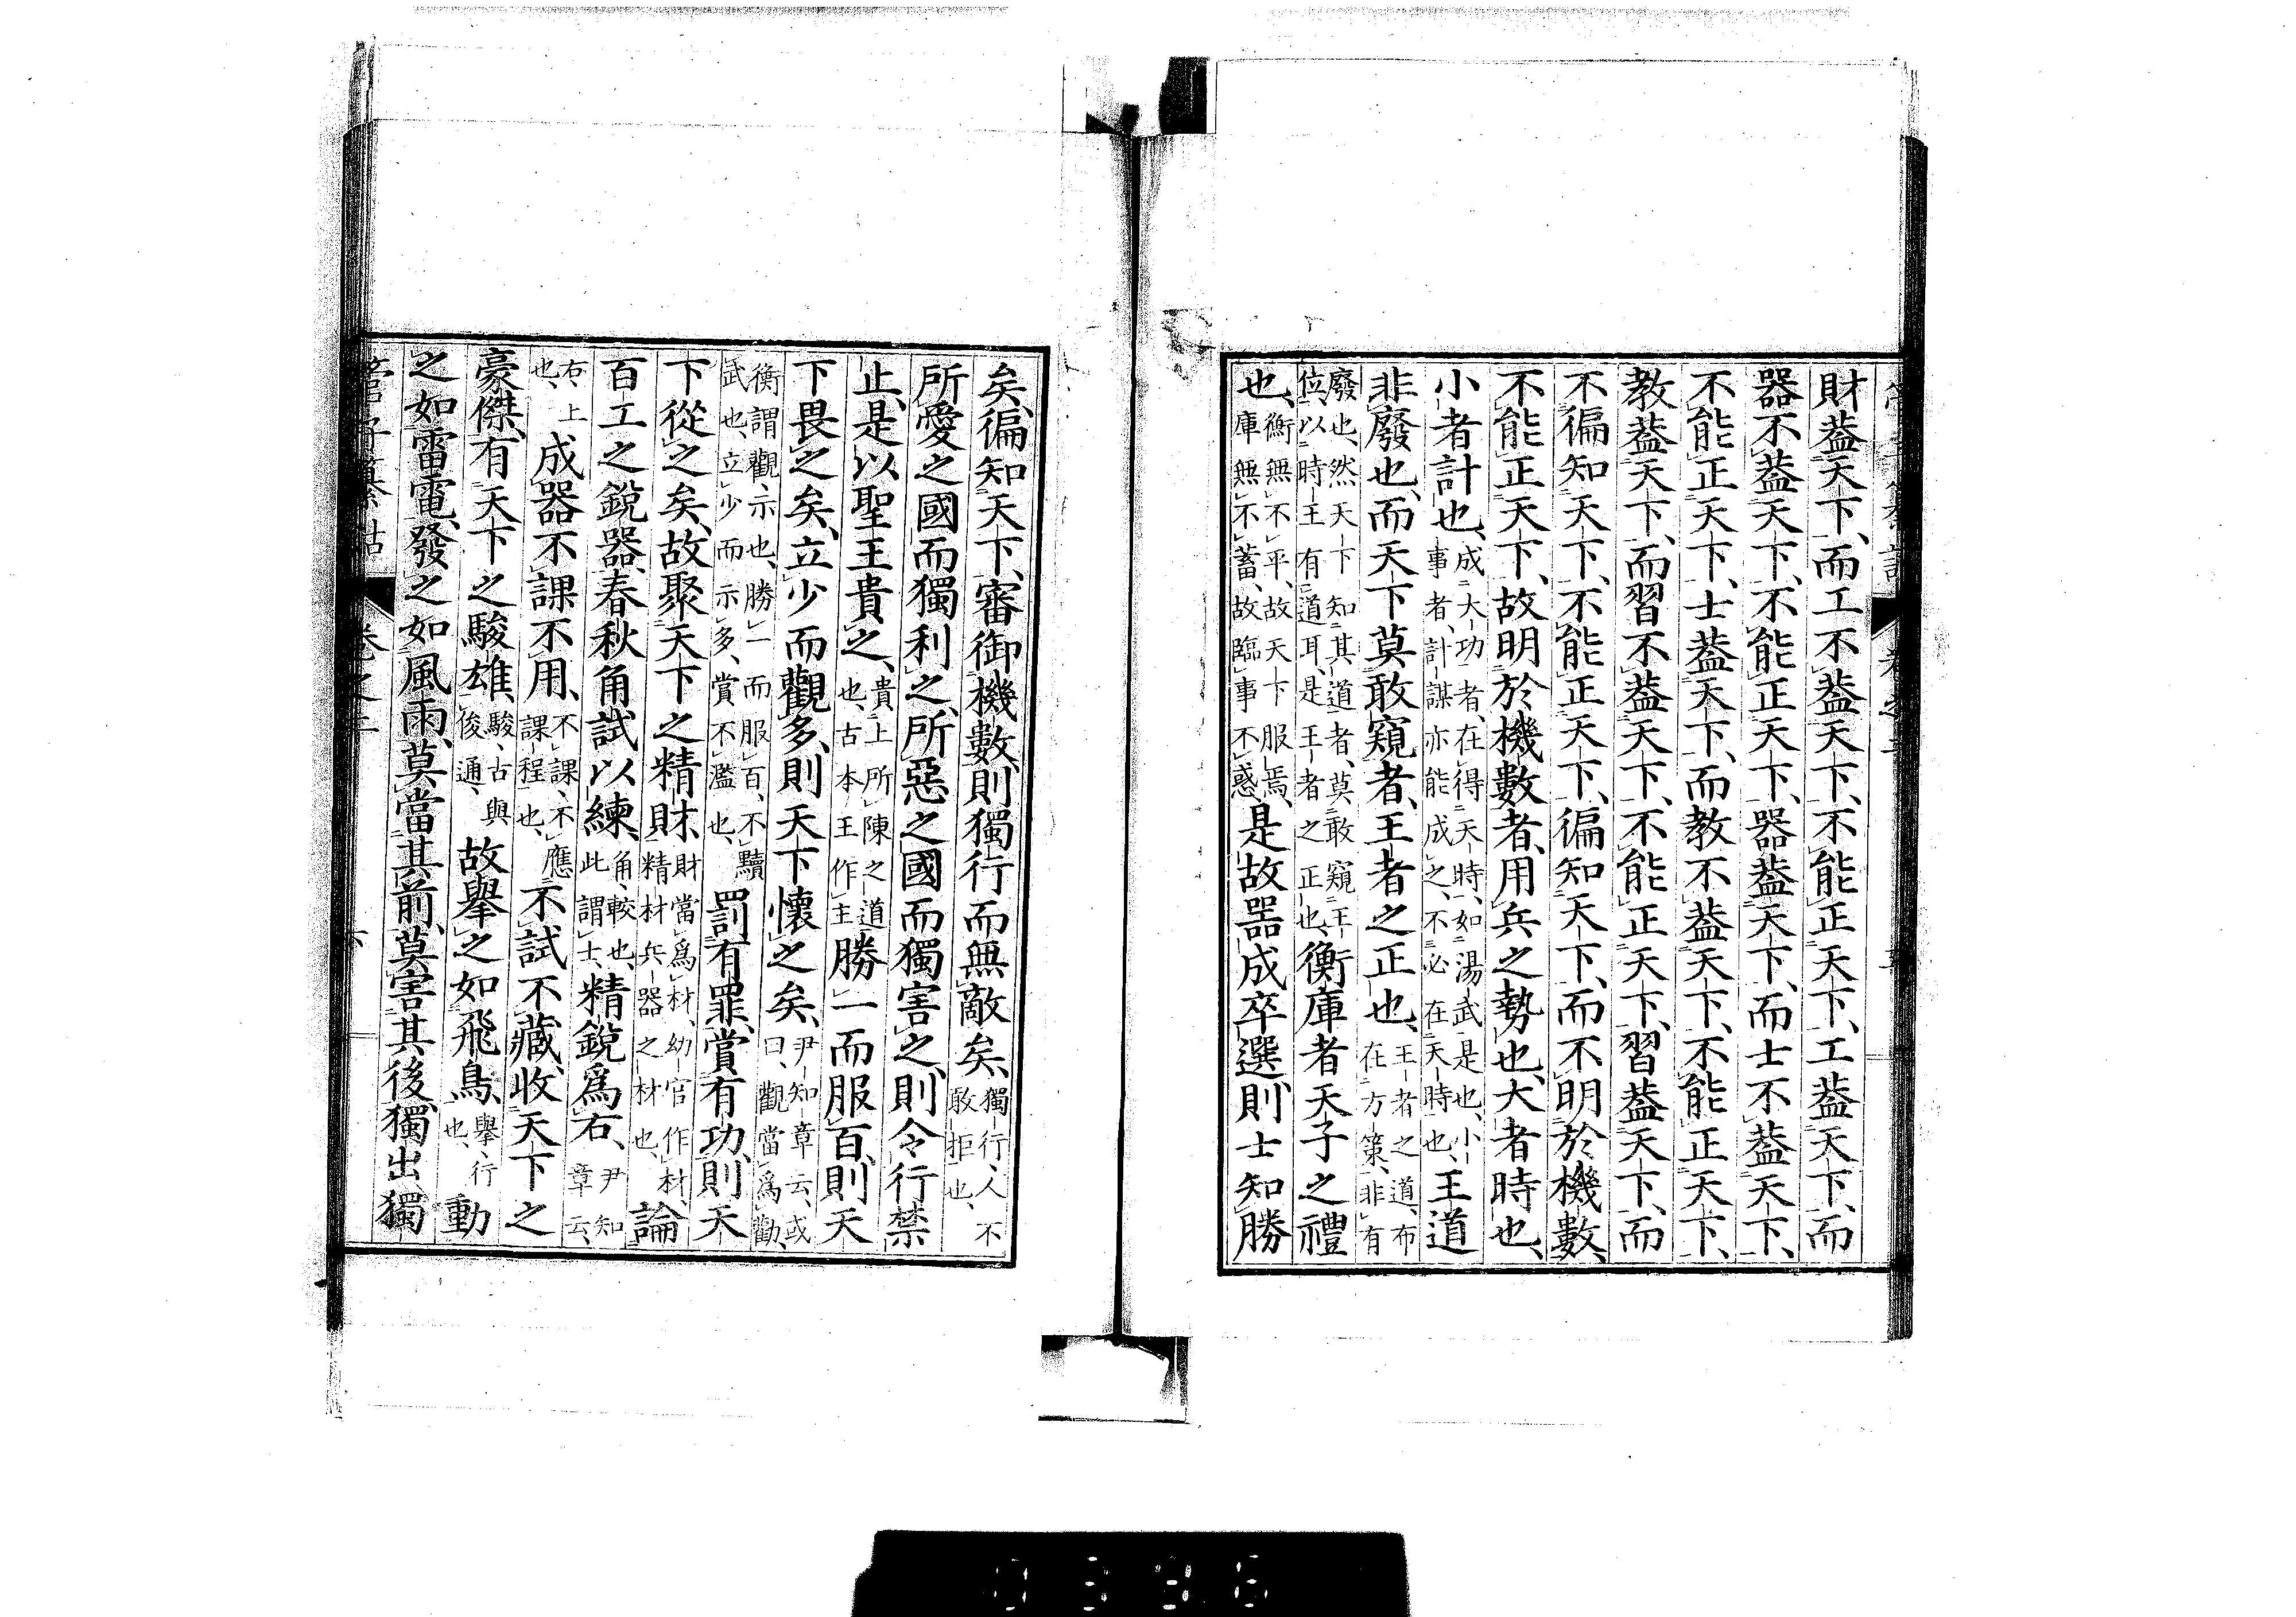 財蓋天下、而工不蓋天下、不能正天下、工蓋天下、而
器不蓋天下、不能正天下、器蓋天下、而士不蓋天下、
不能正天下、士蓋天下、而教不蓋天下、不能正天下、
教蓋天下、而習不蓋天下、不能正天下、習蓋天下、而
不徧知天下、不能正天下、徧知天下、而不明於機數、
不能正天下、故明於機數者、用兵之勢也、大者時也、
小者計也、成大功者、在得天時、如湯武是也、小事者、計謀亦能成之、不必在天時也、王道
非廢也、而天下莫敢窺者、王者之正也、王者之道、布在方策、非有
廢也、然天下知其道者、莫敢窺王位、以時王有道耳、是王者之正也、衡庫者天子之禮
也、衡無不平、故天下服焉、庫無不蓄、故臨事不惑、是故器成卒選、則士知勝
矣、徧知天下、審御機數、則獨行而無敵矣、獨行、人不敢拒也、
所愛之國而獨利之、所惡之國而獨害之、則令行禁
止、是以聖王貴之、貴上所陳之道也、古本王作主、勝一而服百、則天
下畏之矣、立少而觀多、則天下懷之矣、尹知章云、或曰、觀當爲勸、
衡謂觀、示也、勝一而服百、不黷武也、立少而示多、賞不濫也、罰有罪、賞有功、則天
下從之矣、故聚天下之精財、財當爲材、幼官作材、精材兵器之材也、論
百工之銳器、春秋角試以練、角、較也、此謂士、精銳爲右、尹知章云、
右、上也、成器不課不用、不課、不應課程也、不試不藏、收天下之
豪傑、有天下之駿雄、駿、古與俊通、故舉之如飛鳥、舉、行也、動
之如雷電、發之如風雨、莫當其前、莫害其後、獨出獨